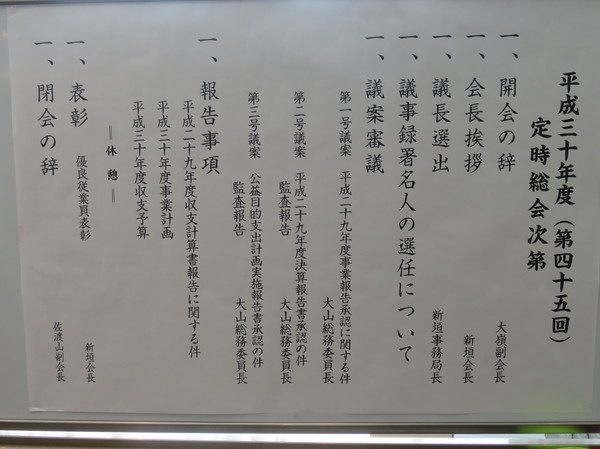 平成三十年度（第四十五回）
定時総会次第
一、開会の辞　大嶺副会長
一、会長挨拶　新垣会長
一、議長選出　新垣事務局長
一、議事録署名人の選任について
一、議案審議
第一号議案　平成二十九年度事業報告承認に関する件
大山総務委員長
第二号議案　平成二十九年度決算報告書承認の件
監査報告　大山総務委員長
第三号議案　公益目的支出計画実施報告書承認の件
監査報告　大山総務委員長
一、報告事項
平成二十九年度収支計算書報告に関する件
平成三十年度事業計画
平成三十年度収支予算
＝休憩＝
一、表彰
優良従業員表彰　新垣会長
一、閉会の辞　佐渡山副会長